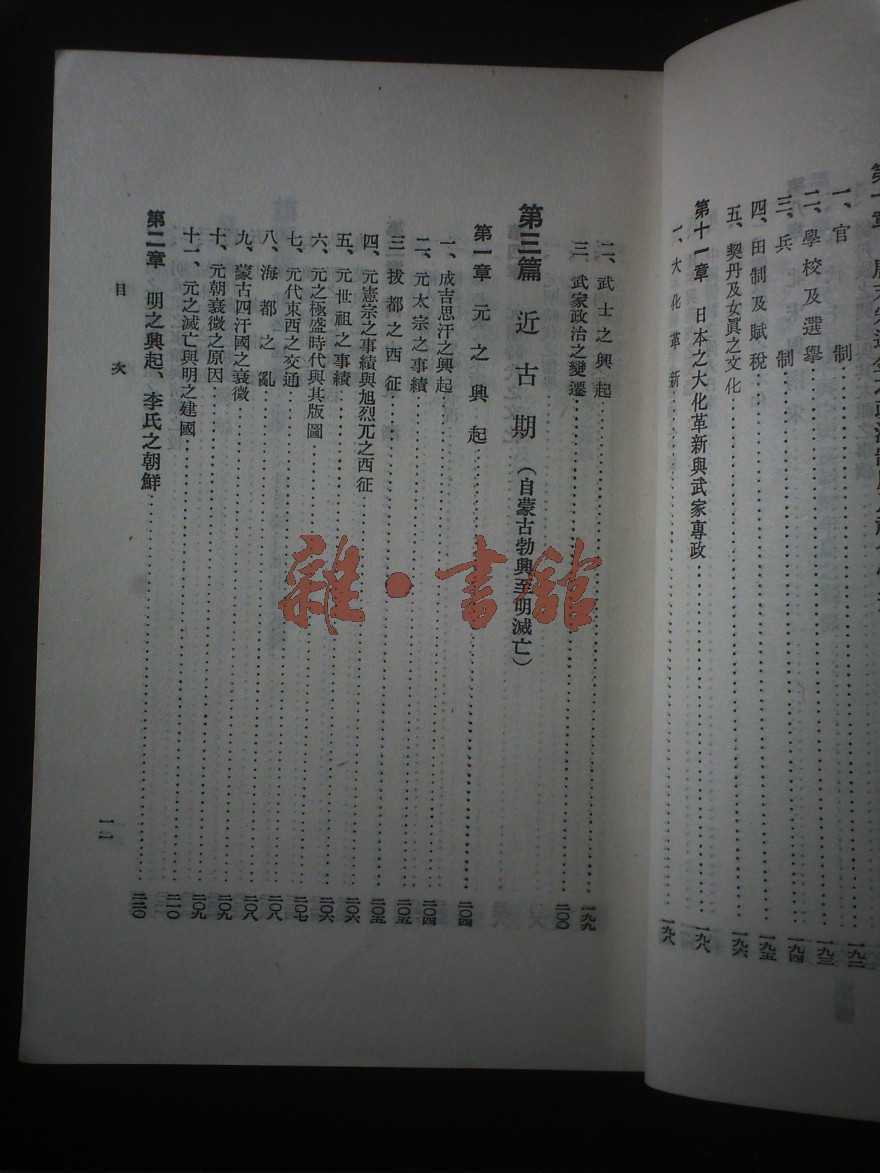 一、官制……一九二
二、學校及選舉……一九三
三、兵制……一九四
四、田制及賦稅……一九五
五、契丹及女眞之文化……一九六
第十一章 日本之大化革新與武家專政……一九八
一、大化革新……一九八
二、武士之興起……一九九
三、武家政治之變遷……二〇〇
第三篇 近古期（自蒙古勃興至明滅亡）
第一章 元之興起……二〇四
一、成吉思汗之興起……二〇四
二、元太宗之事績……二〇五
三、拔都之西征……二〇五
四、元憲宗之事績與旭烈兀之西征……二〇六
五、元世祖之事績……二〇六
六、元之極盛時代與其版圖……二〇七
七、元代東西之交通……二〇八
八、海都之亂……二〇八
九、蒙古四汗國之衰微……二〇九
十、元朝衰微之原因……二〇九
十一、元之滅亡與明之建國……二一〇
第二章 明之興起、李氏之朝鮮……
目次
一二
雜·書館